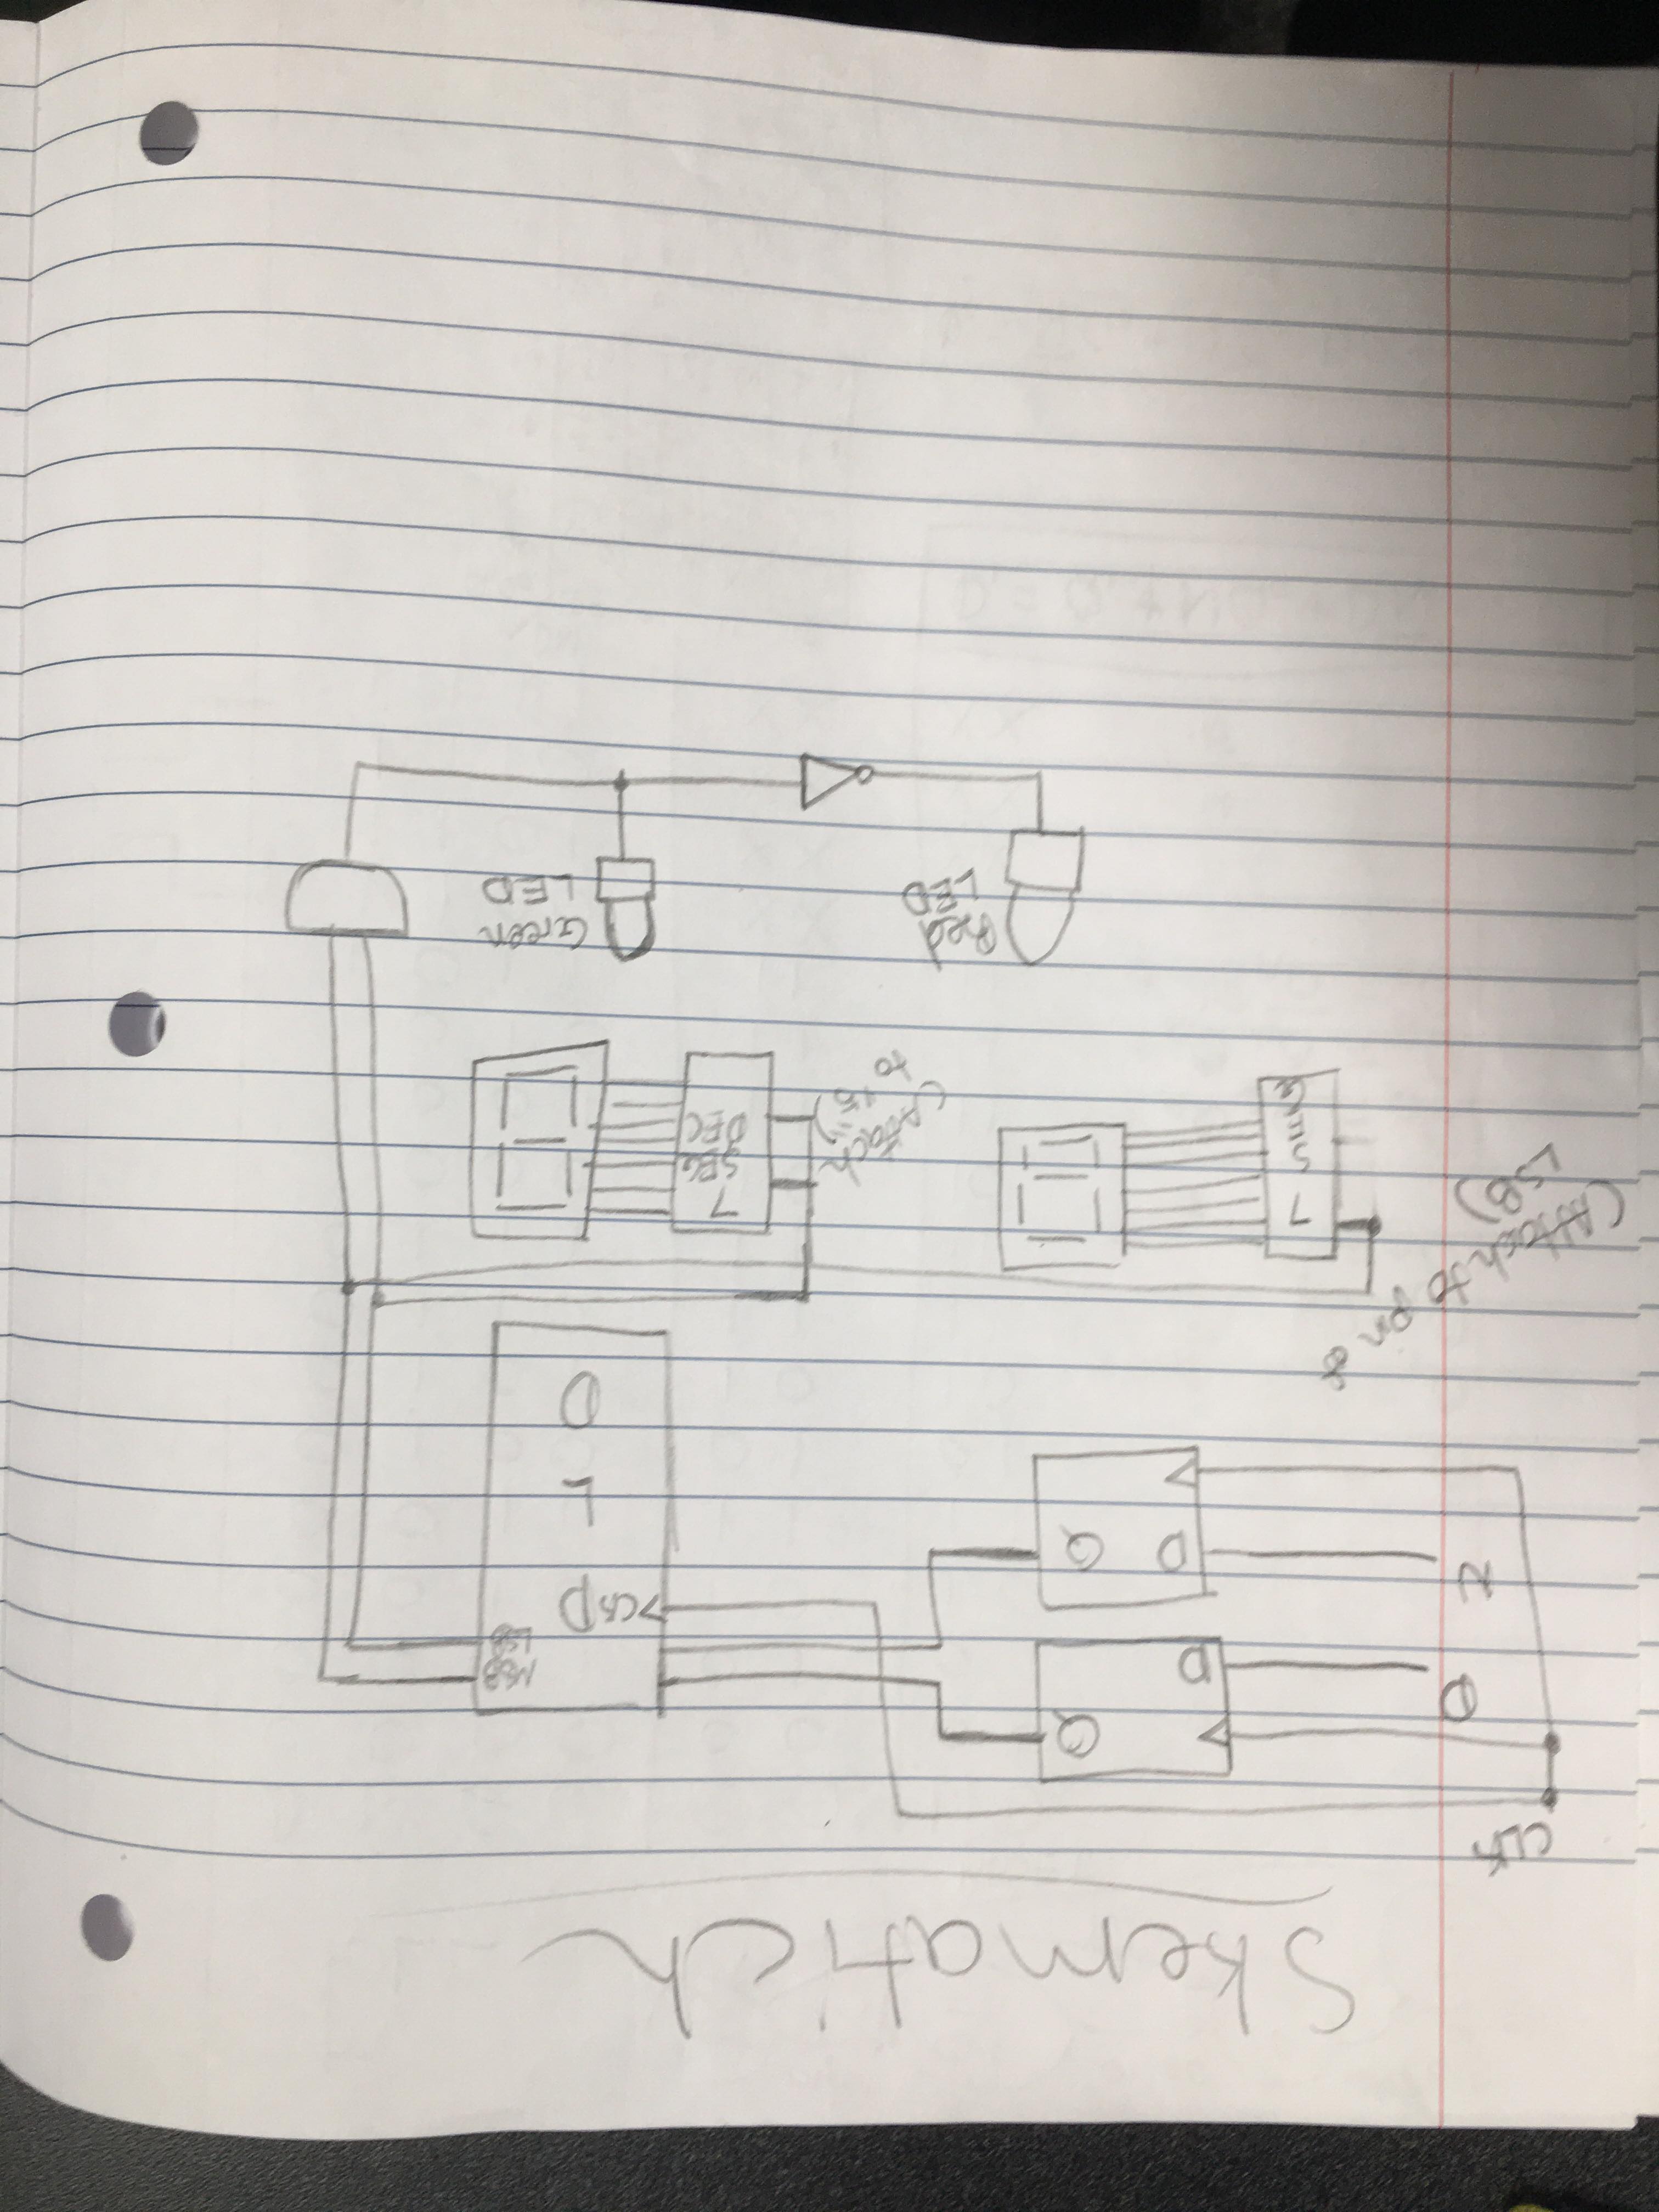 Skematich
CLK
D
Q
D
N
D Q
MSB
LSB
CLK
P
L
D
(Attach to pin 8
LSB)
7
S
E
G
(Attach
to "5")
7
SEG
DEC
Red
LED
Green
LED